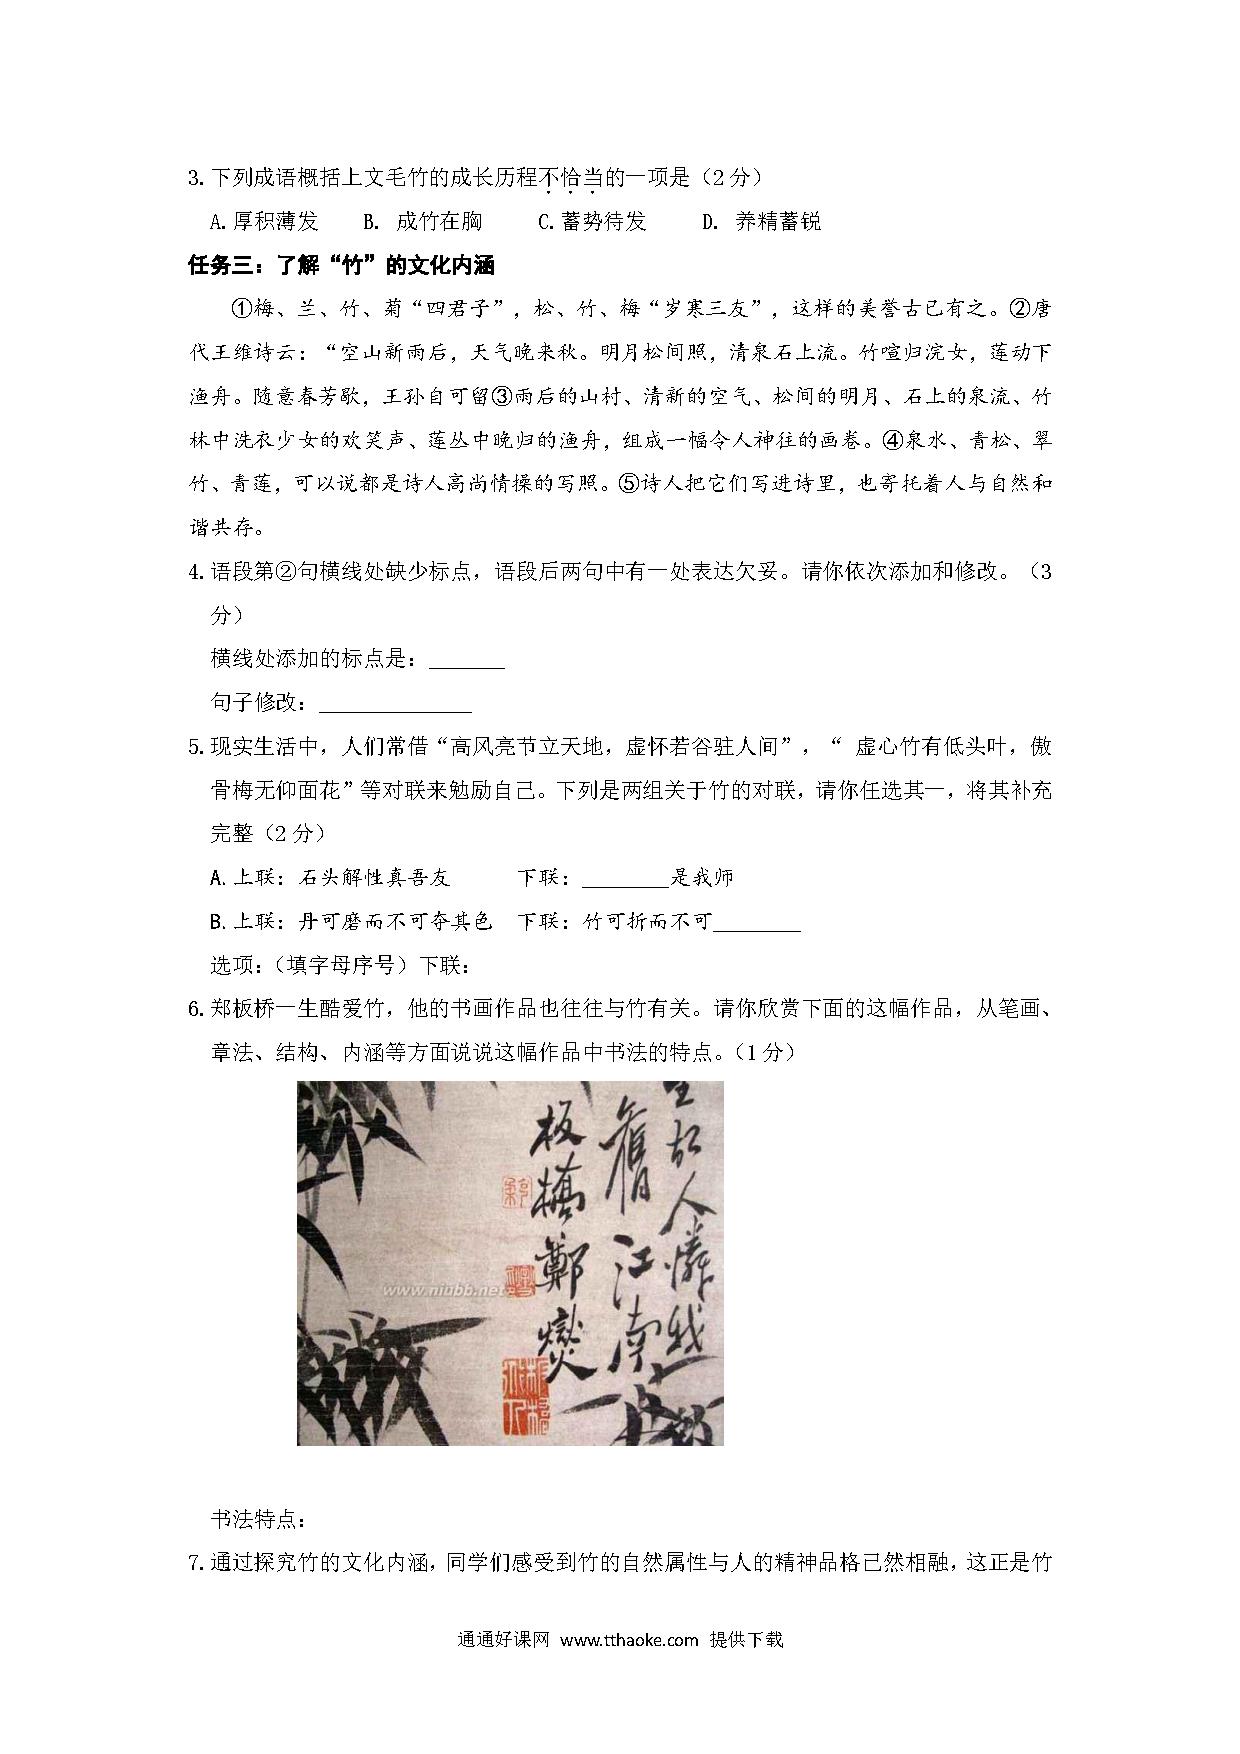 3.下列成语概括上文毛竹的成长历程不恰当的一项是（2分）
A.厚积薄发 B. 成竹在胸 C.蓄势待发 D. 养精蓄锐
任务三：了解“竹”的文化内涵
①梅、兰、竹、菊“四君子”，松、竹、梅“岁寒三友”，这样的美誉古已有之。②唐
代王维诗云：“空山新雨后，天气晚来秋。明月松间照，清泉石上流。竹喧归浣女，莲动下
渔舟。随意春芳歇，王孙自可留③雨后的山村、清新的空气、松间的明月、石上的泉流、竹
林中洗衣少女的欢笑声、莲丛中晚归的渔舟，组成一幅令人神往的画卷。④泉水、青松、翠
竹、青莲，可以说都是诗人高尚情操的写照。⑤诗人把它们写进诗里，也寄托着人与自然和
谐共存。
4.语段第②句横线处缺少标点，语段后两句中有一处表达欠妥。请你依次添加和修改。（3
分）
横线处添加的标点是：_______
句子修改：______________
5.现实生活中，人们常借“高风亮节立天地，虚怀若谷驻人间”，“ 虚心竹有低头叶，傲
骨梅无仰面花”等对联来勉励自己。下列是两组关于竹的对联，请你任选其一，将其补充
完整（2分）
A.上联：石头解性真吾友 下联：________是我师
B.上联：丹可磨而不可夺其色 下联：竹可折而不可________
选项：（填字母序号）下联：
6.郑板桥一生酷爱竹，他的书画作品也往往与竹有关。请你欣赏下面的这幅作品，从笔画、
章法、结构、内涵等方面说说这幅作品中书法的特点。（1分）
故人怜我
旧江南
板桥郑燮
www.niubb.net
书法特点：
7.通过探究竹的文化内涵，同学们感受到竹的自然属性与人的精神品格已然相融，这正是竹
通通好课网 www.tthaoke.com 提供下载